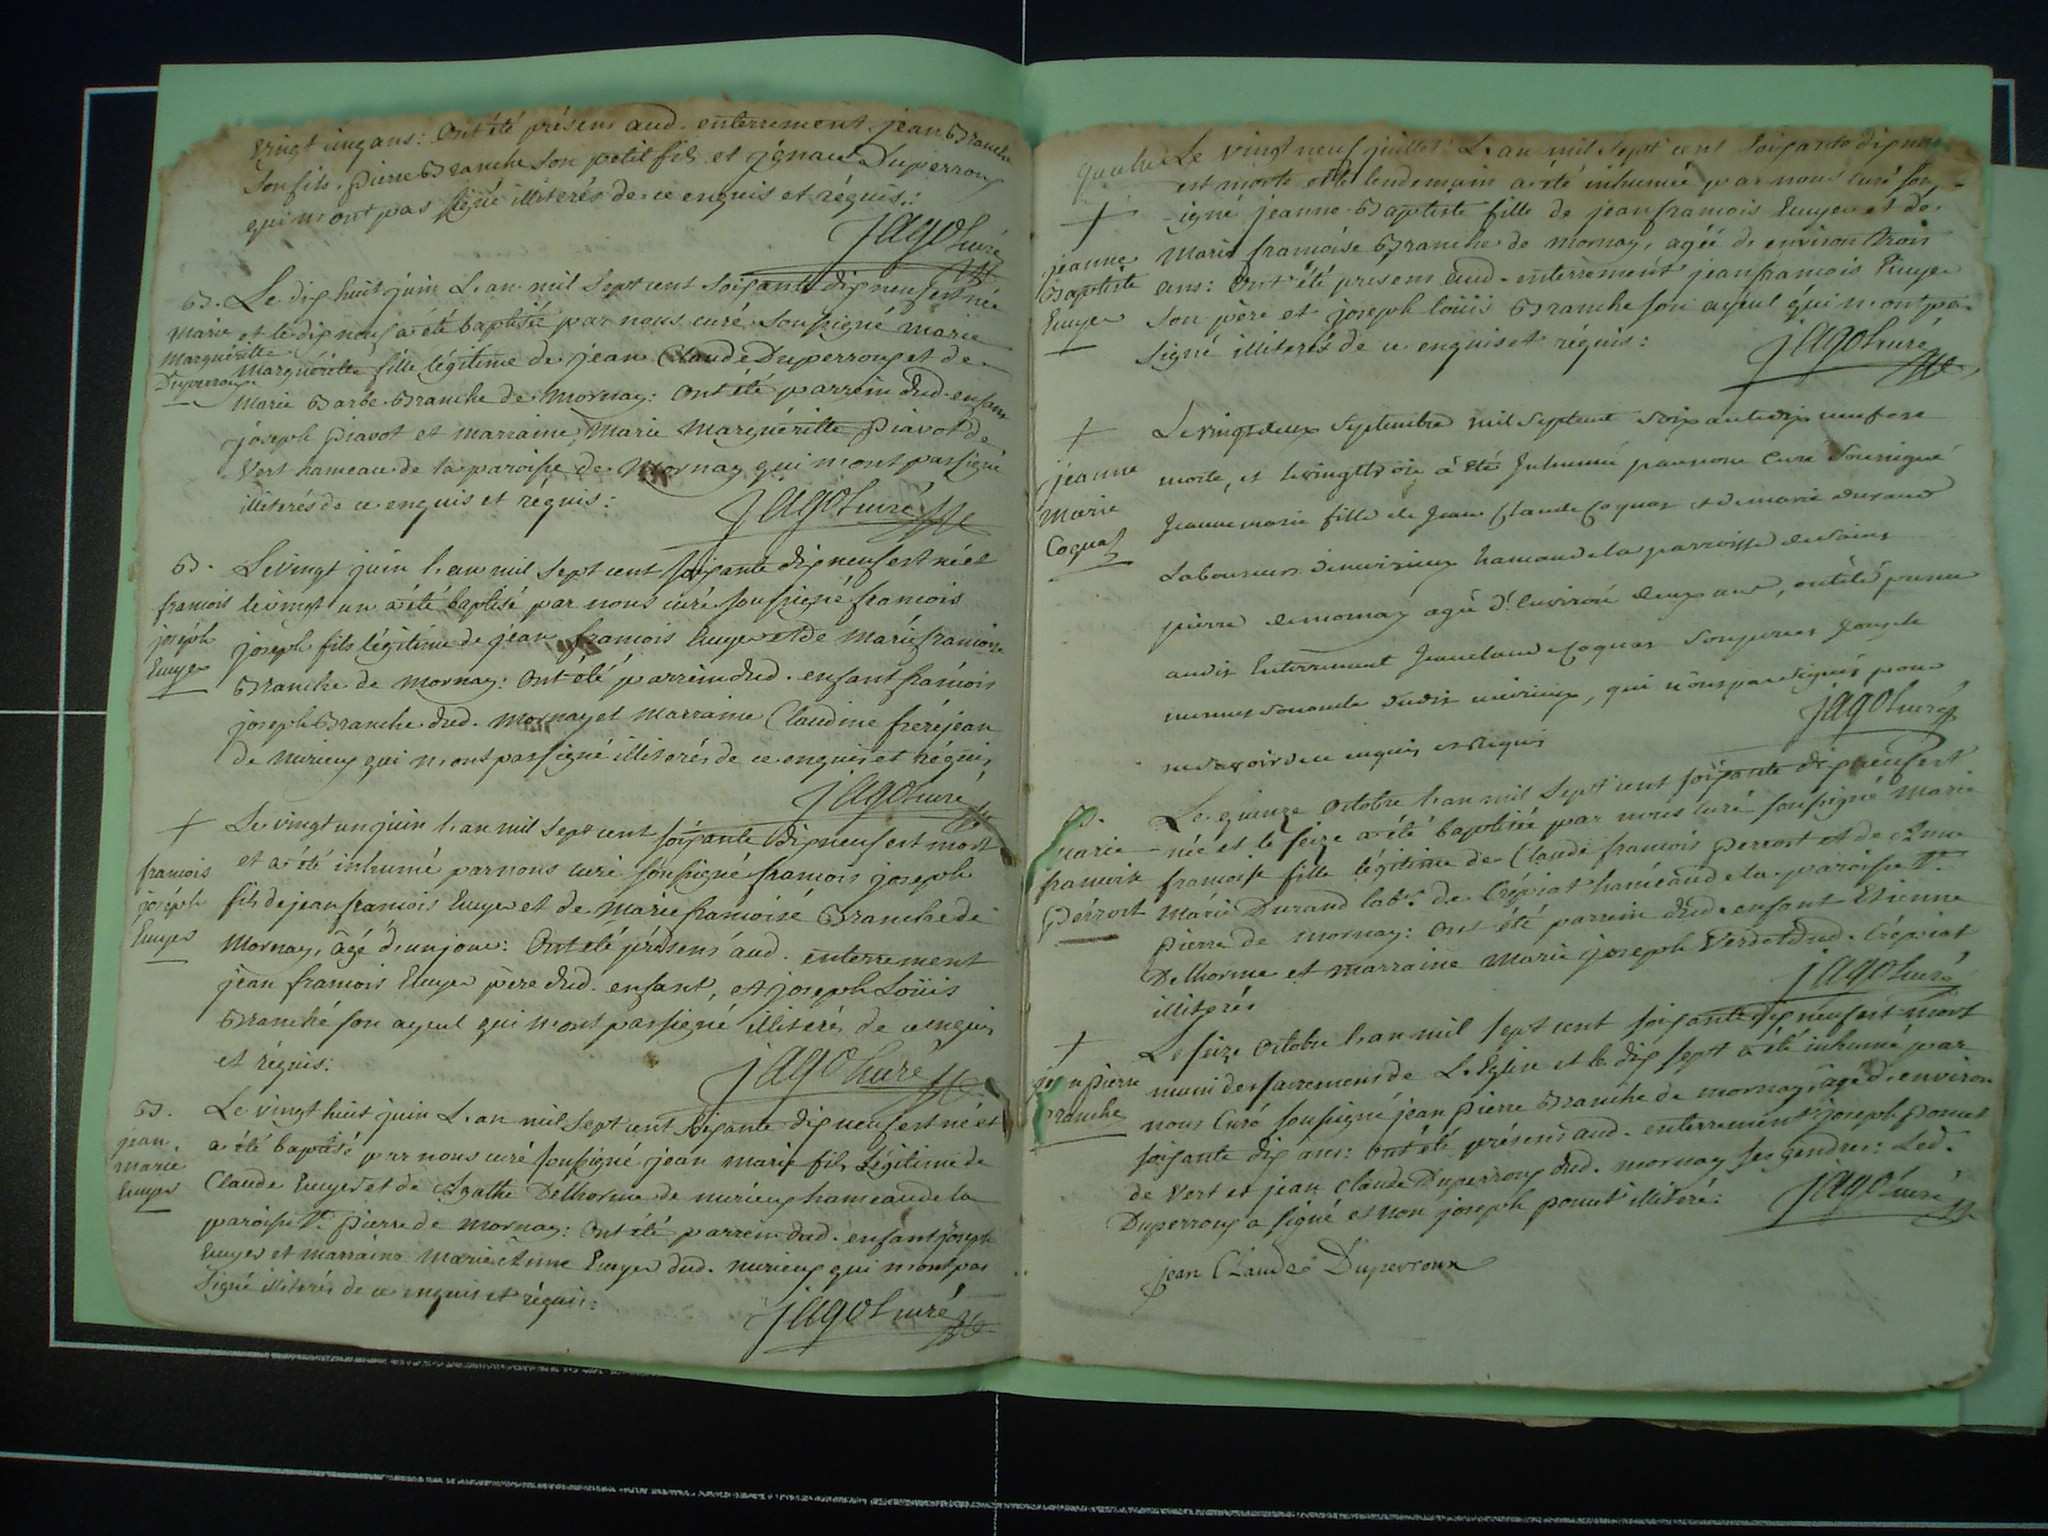 vingt cinq ans: Ont été présens aud. enterrement jean Branche
son fils, pierre Branche son petit fils et ignace Duperroux
qui n'ont pas signé illiterés de ce enquis et réquis.:
jagot curé
B. Le dix huit juin L'an mil sept cent soixante dix neuf est née
Marie et le dix neuf a été baptisée par nous curé soussigné marie
Marguéritte
Marguéritte fille légitime de jean Claude Duperroux et de
Duperroux
Marie Barbe Branche de Mornay: Ont été parrein dud. enfant
joseph piavot et marraine, Marie Marguéritte piavot de
Vert hameau de la paroisse de Mornay qui n'ont pas signé
illiterés de ce enquis et réquis:
jagot curé
B. Le vingt juin L'an mil sept cent soixante dix neuf est né et
francois le vingt un a été baptisé par nous curé soussigné francois
joséph joseph fils légitime de jean francois Emyer et de Marie francoise
Emyer
Branche de Mornay: Ont été parrein dud. enfant francois
joseph Branche dud. Mornay et Marraine Claudine frerejean
de nurieux qui n'ont pas signé illiterés de ce enquis et réquis,
jagot curé
+ Le vingt un juin L'an mil sept cent soixante dix neuf est mort
et a été inhumé par nous curé soussigné francois joseph
francois
joséph fils de jean francois Emyer et de Marie francoise Branche de
Emyer Mornay, âgé d'un jour: Ont été présens aud. enterrement
jean francois Emyer père dud. enfant, et joseph Loüis
Branche son ayeul qui n'ont pas signé illiterés de ce enquis
et réquis:
jagot curé
B. Le vingt huit juin L'an mil sept cent soixante dix neuf est né et
jean a été baptisé par nous curé soussigné jean marie fils légitime de
marie
Emyer Claude Emyer et de Agathe Delhorme de nurieux hameau de la
paroisse St. pierre de Mornay: Ont été parrein dud. enfant joseph
Emyer et marraine Marie Anne Emyer dud. nurieux qui n'ont pas
signé illiterés de ce enquis et réquis:
jagot curé
Le vingt neuf juillet L'an mil sept cent soixante dix neuf
est morte et le lendemain a été inhumée par nous curé sous-
+ igné jeanne Baptiste fille de jean francois Emyer et de
jeanne Marie francoise Branche de mornay, agée de environ trois
Baptiste ans: Ont été presens aud. enterrement jean francois Emyer
Emyer son père et joseph loüis Branche son ayeul qui n'ont pas
signé illiterés de ce enquis et réquis:
jagot curé
+ Le vingt deux septembre mil sept cent soixante dix neuf est
jeanne morte, et le vingt trois a été Inhumée par nous curé soussigné
Marie Jeanne marie fille de Jean Claude Coquaz et de marie durand
Coquaz
Laboureurs hameau de la parroisse de saint
pierre de mornay agée d'environ deux ans, ont été presens
audit Enterrement Jean claude Coquaz son pere et joseph
dudit nurieux, qui n'ont pas signés pour
ne savoir de ce enquis et Requis
jagot curé
B. Le quinze Octobre L'an mil sept cent soixante dix neuf est
marie née et le seize a été baptisée par nous curé soussigné Marie
francoise francoise fille légitime de Claude francois perrost et de Anne
perrost Marie Durand labr. de Crépiat hameau de la paroisse St.
pierre de mornay: Ont été parrein dud. enfant Etienne
Delhorme et marraine Marie joseph Verdet dud. Crépiat
illiterés
jagot curé
+ Le seize Octobre L'an mil sept cent soixante dix neuf est mort
jean pierre muni des sacremens de L'Eglise et le dix sept a été inhumé par
Branche nous Curé soussigné jean pierre Branche de mornay, âgé d'environ
soixante dix ans: Ont été présens aud. enterrement joseph poncet
de Vert et jean claude Duperroux dud. mornay ses gendres: Led.
Duperroux a signé et non joseph poncet illiteré:
jagot curé
jean Claude Duperroux